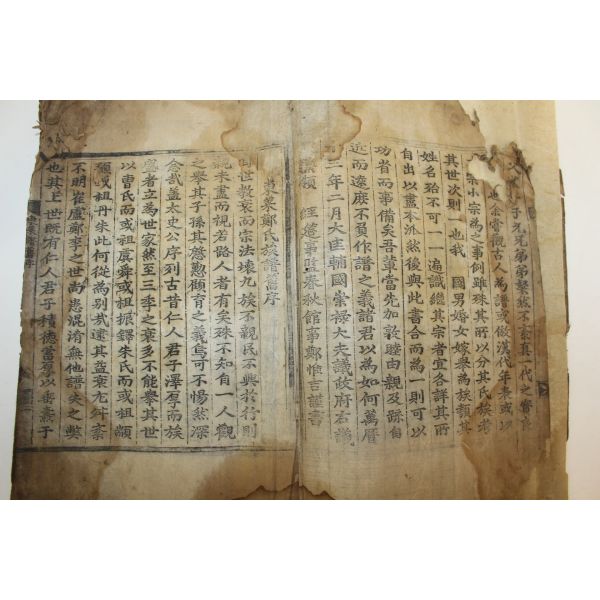 子兄兄弟弟 然不紊真一代之
也余嘗觀古人為譜或倣漢代年表或以
宗小宗為之事例雖殊其所以分其氏族考
其世次則一也我 國男婚女嫁舉為族類其
姓名殆不可一一遍識繼其宗者宜各詳其所
自出以盡本派然後與此書合而為一則可以
功省而第備矣吾輩當先加敦睦由親及踈自
近而遠庶不負作譜之義諸君以為如何萬曆
三年二月大匡輔國崇祿大夫議政府右議
領 經筵事監春秋館事鄭惟吉謹書
東萊鄭氏族譜舊序
世敎衰而宗法壞九族不親民不興於行則
親未盡而視若路人者有矣殊不知自一人觀
之擧其子孫其慇懃顧育之義烏可不惕然深
念哉盖太史公序列古昔仁人君子澤厚而族
處者立為世家然至三季之衰多不能擧其世
以曹氏而或祖虞舜或祖振鐸朱氏而或祖顓
頊或祖丹朱此何從為别哉逮其益衰尤舛紊
不明崔盧鄭李之世尚患混淆無他譜失之獘
也其上世既有仁人君子積德當厚以垂慕于